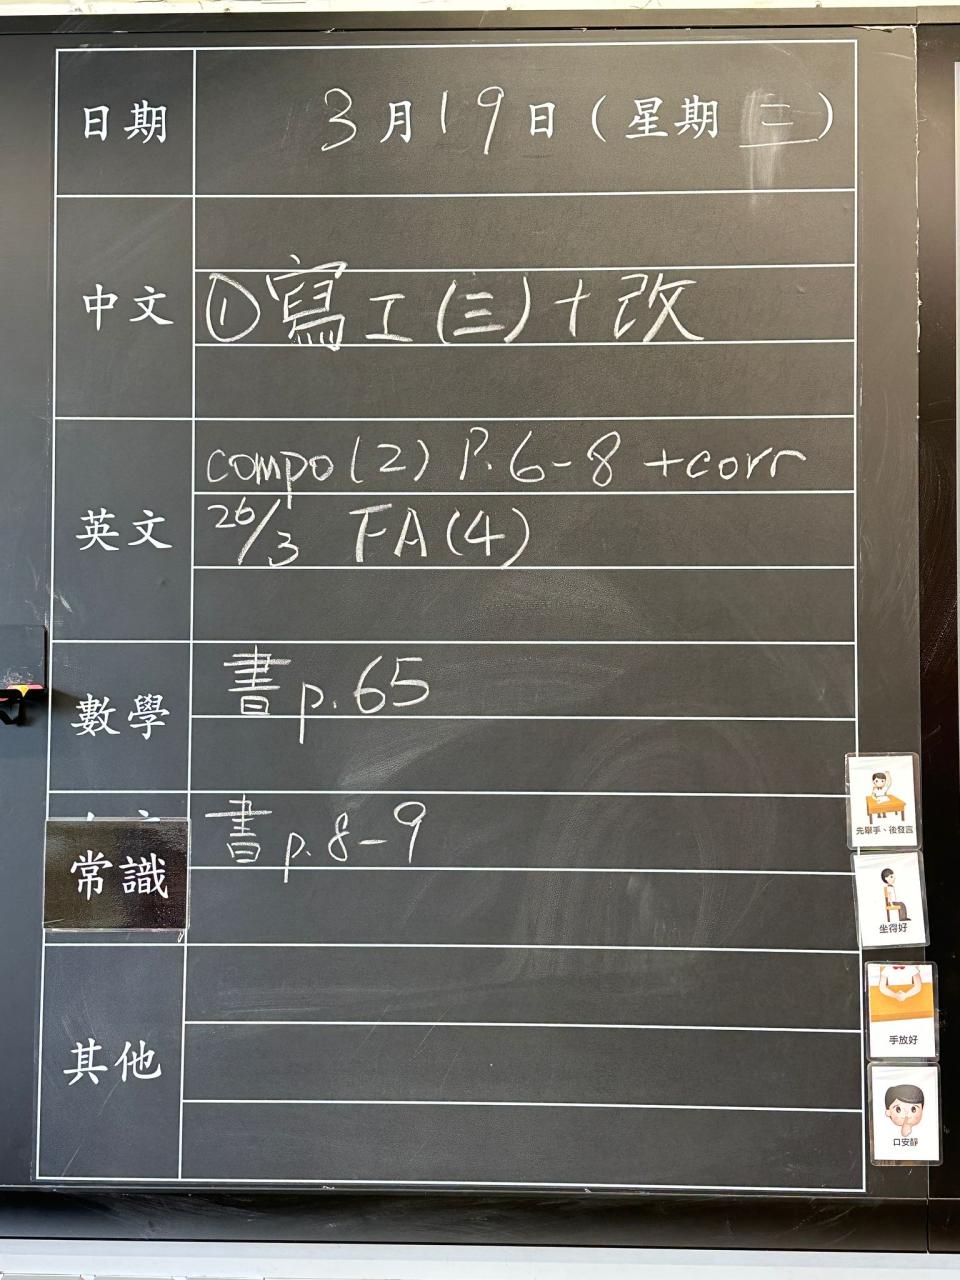 日期 3月19日(星期三)
中文
①寫工(三)+改
英文
compo(2) P.6-8 +corr
26/3 FA(4)
數學
書 p.65
常識
書 p.8-9
其他
先舉手、後發言
坐得好
手放好
口安靜